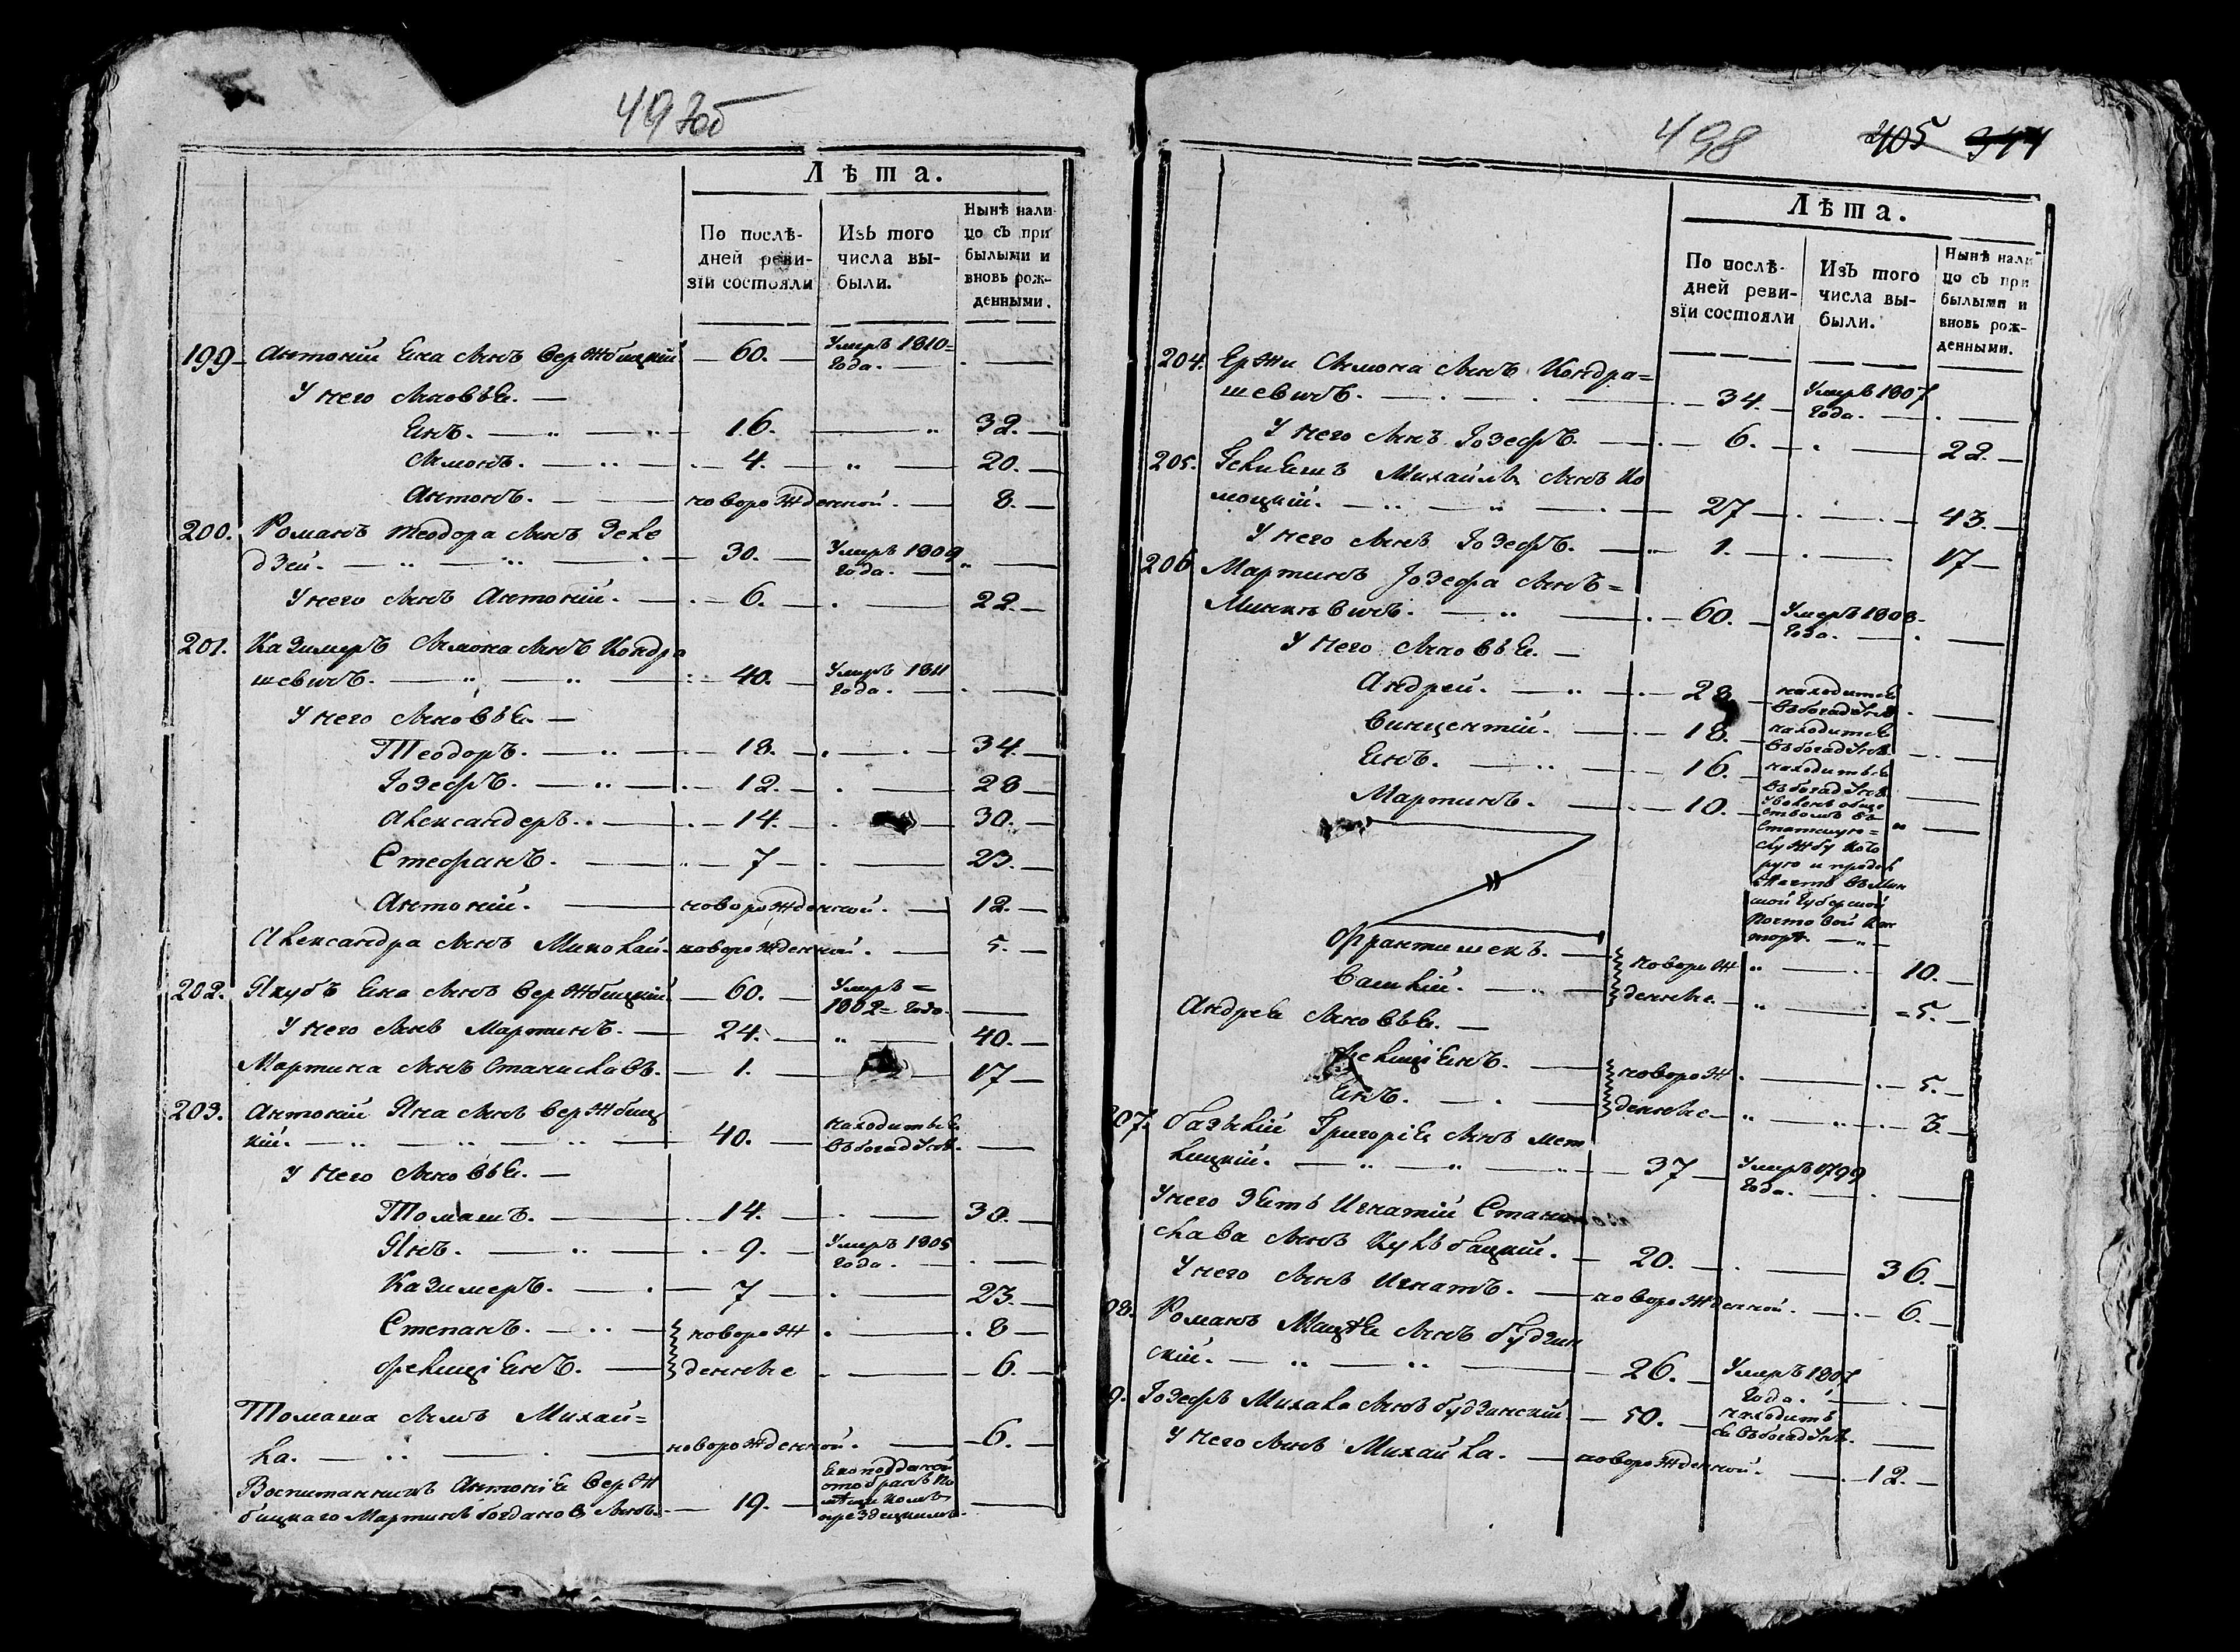 497об
Лѣта.
По послѣ-
дней реви-
зїи состояли
Изъ того
числа вы-
были.
Нынѣ нали
цо съ при
былыми и
вновь рож-
денными.
199 Антоній Яна сынъ Вержбицкій — 60. — Умеръ 1810=
года. —
У него сыновья. —
Янъ. — 16. — 32. —
Симонъ. — 4. — 20. —
Антонъ. — новорожденной. — 8. —
200. Романъ Теодора сынъ Зеле
дзей. — 30. — Умеръ 1809
года. —
У него сынъ Антоній. — 6. — 22. —
201. Казимеръ Симона сынъ Кондра
шевичъ. — 40. — Умеръ 1811
года. —
У него сыновья. —
Теодоръ. — 18. — 34. —
Іозефъ. — 12. — 28 —
Александеръ. — 14. — 30. —
Стефанъ. — 7 — 23. —
Антоній. — новорожденной. — 12. —
Александра сынъ Миколай. новорожденной. — 5. —
202. Якубъ Яна сынъ Вержбицкій — 60. — Умеръ =
1802= года. —
У него сынъ Мартинъ. — 24. — 40. —
Мартина сынъ Станиславъ. — 1. — 17 —
203. Антоній Яна сынъ Вержбиц
кій. — 40. — находится
въ богадѣлнѣ. —
У него сыновья. —
Томашъ. — 14. — 30. —
Янъ. — 9. — Умеръ 1805
года. —
Казимеръ. — 7 — 23. —
Степанъ. — новорож — 8 —
Фелиціянъ. — денные — 6. —
Томаша сынъ Михай=
ла. — новорожденной. — 6. —
Воспитанникъ Антонія Верж
бицкаго Мартинъ Богдановъ сынъ. — 19. —
498 405 344
Лѣта.
По послѣ-
дней реви-
зїи состояли
Изъ того
числа вы-
были.
Нынѣ нали
цо съ при
былыми и
вновь рож-
денными.
204. Ержи Симона сынъ Кондра=
шевичъ. — 34. — Умеръ 1807
года. —
У него сынъ Іозефъ. — 6. — 22. —
205. Михайла сынъ Ко
моцкій. — 27 — 43. —
У него сынъ Іозефъ. — 1. — 17 —
206 Мартинъ Іозефа сынъ=
Минкевичъ. — 60. — Умеръ 1808
года. —
У него сыновья. —
Андрей. — 28 — находится
въ богадѣлнѣ —
Винцентій. — 18. — находится
въ богадѣлнѣ —
Янъ. — 16. — находится
въ богадѣлнѣ —
Мартинъ. — 10. — обще
ствомъ въ
статскую=
службу кото
рую и продол
жаетъ въ Мин
ской Губернской
Почтовой Кон
торѣ. —
Франтишекъ. — новорож — 10. —
Василій. — денные. — 5. —
Андрея сыновья. —
Фелиціянъ. — новорож — 5. —
Янъ. — денные — 3. —
207. Базылій Григорія сынъ Мет
лицкій. — 37 — Умеръ 1799
года. —
У него зять Игнатій Стани
слава сынъ Кульбацкій. — 20. — 36. —
У него сынъ Игнатъ. — новорожденной. — 6. —
08. Романъ Мацѣя сынъ Будзин
скій. — 26. — Умеръ 1807
года. —
9. Іозефъ Михала сынъ Будзинскій — 50. — находит
ся въ богадѣлнѣ. —
У него сынъ Михайла. — новорожденной. — 12. —